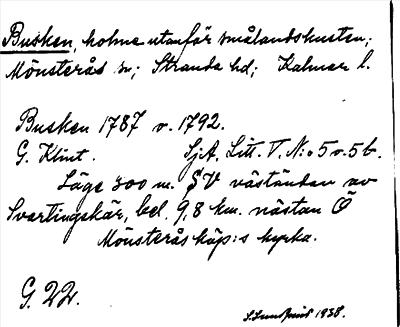 Busken, holme utanför smålandskusten;
Mönsterås sn; Stranda hd; Kalmar l.
Busken 1787 o. 1792.
G. Klint. SjA. Litt. V. N:o 5 o. 5 b.
Läge 300 m. SV väständan av
Svartingskär, bel. 9,8 km. nästan Ö
Mönsterås köp:s kyrka.
G. 22.
1938.